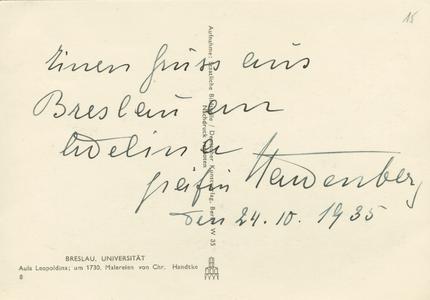 15
Einen Gruss aus
Breslau an
Adelina
Gräfin Hardenberg
den 24. 10. 1935
Aufnahme: Staatliche Bildstelle / Deutscher Kunstverlag, Berlin W 35
Nachdruck verboten
BRESLAU, UNIVERSITÄT
Aula Leopoldina; um 1730, Malereien von Chr. Handtke
8